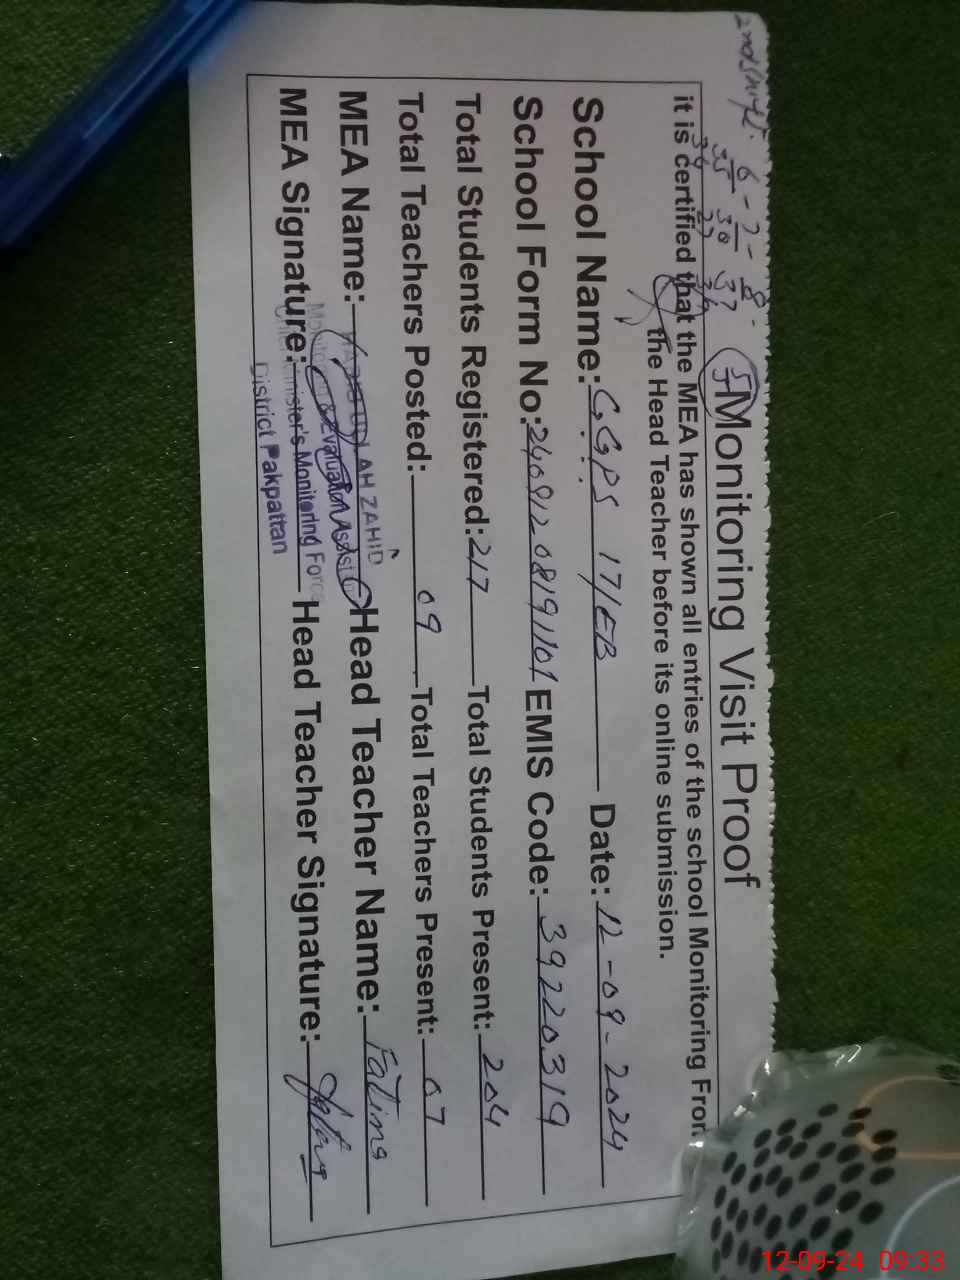 2nd Shift: 6 - 7 - 8.
35 30 37
34 27 36
Monitoring Visit Proof
it is certified that the MEA has shown all entries of the school Monitoring From
the Head Teacher before its online submission.
School Name: G.G.PS 17/EB Date: 12-09-2024
School Form No: 240912 08191101 EMIS Code: 39220319
Total Students Registered: 217 Total Students Present: 204
Total Teachers Posted: 09 Total Teachers Present: 07
MEA Name: Head Teacher Name: Fatima
LAH ZAHID
Monitoring & Evaluation Assist
MEA Signature: Head Teacher Signature:
Chief Minister's Monitoring Force
District Pakpattan
12-09-24 09:33